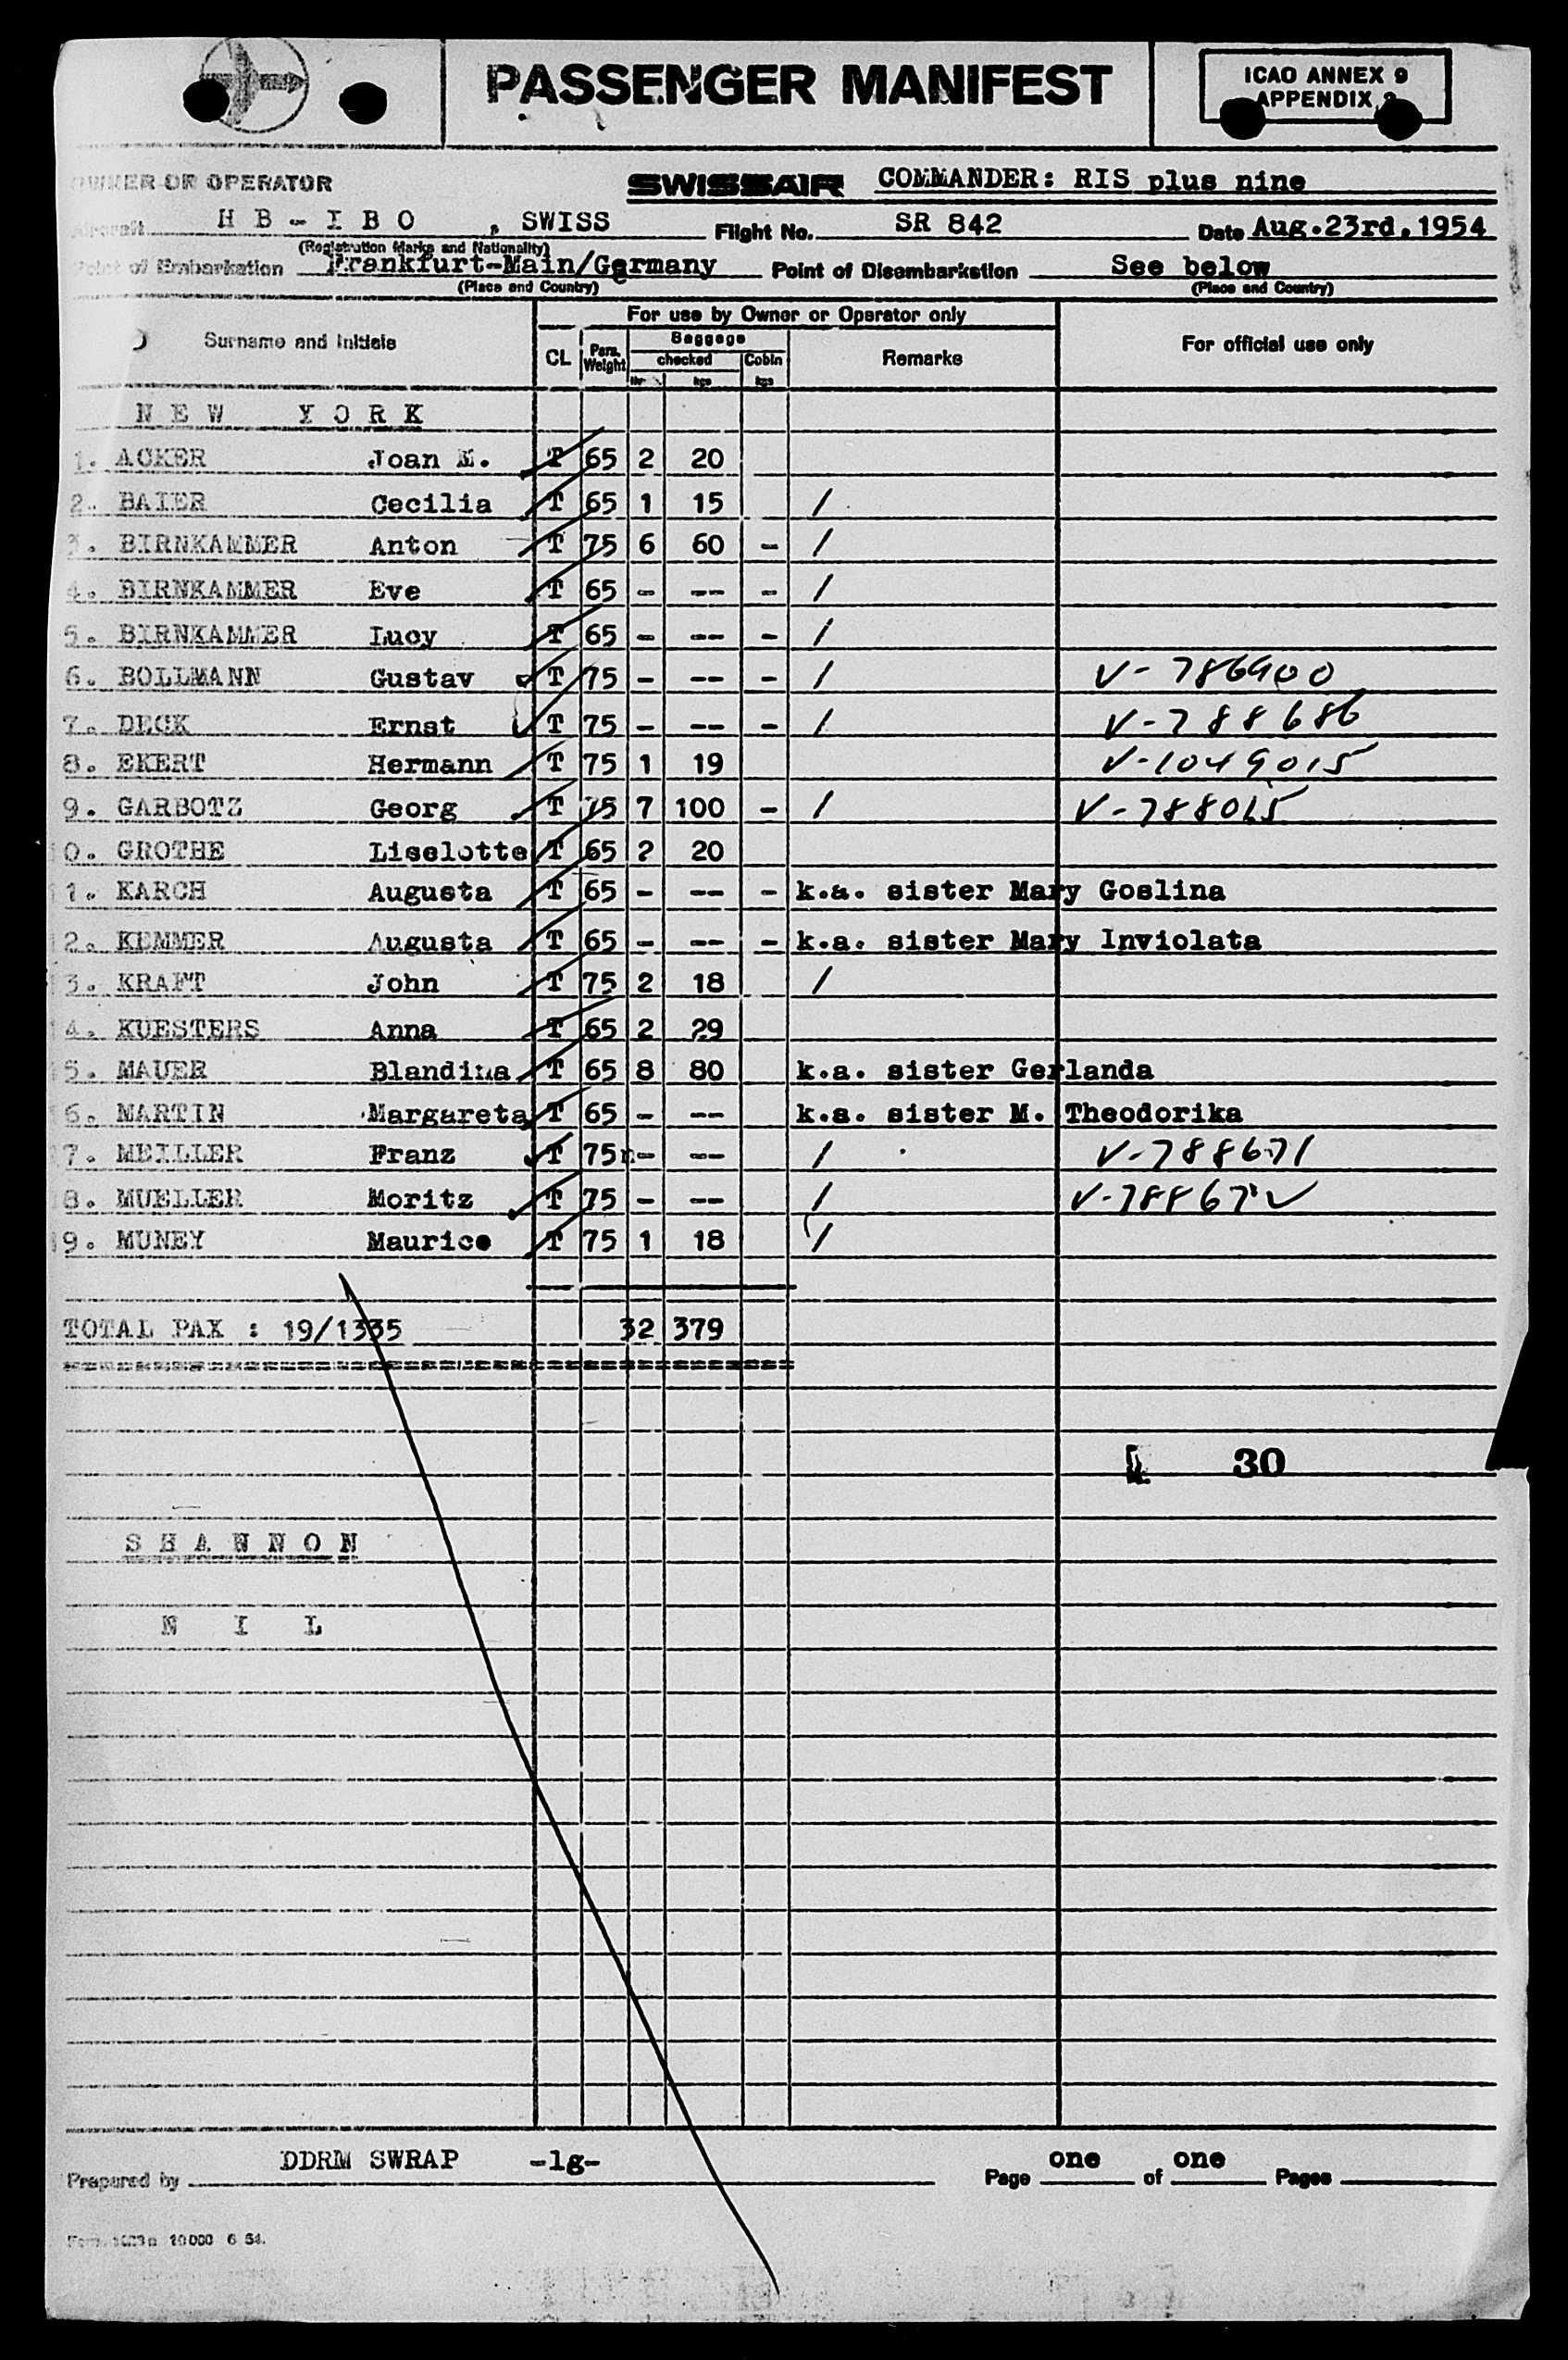 PASSENGER MANIFEST
ICAO ANNEX 9
APPENDIX
OWNER OR OPERATOR
SWISSAIR COMMANDER: RIS plus nine
Aircraft HB-IBO, SWISS Flight No. SR 842 Date Aug.23rd.1954
(Registration Marks and Nationality)
Point of Embarkation Frankfurt-Main/Germany Point of Disembarkation See below
(Place and Country) (Place and Country)
For use by Owner or Operator only
Surname and Initials CL Pers. Weight Baggage checked Cabin Remarks For official use only
Nr kgs kgs
NEW YORK
1. ACKER Joan M. T 65 2 20
2. BAIER Cecilia T 65 1 15 /
3. BIRNKAMMER Anton T 75 6 60 - /
4. BIRNKAMMER Eve T 65 - -- - /
5. BIRNKAMMER Lucy T 65 - -- - /
6. BOLLMANN Gustav T 75 - -- - / V-786900
7. DECK Ernst T 75 - -- - / V-788686
8. EKERT Hermann T 75 1 19 V-1049015
9. GARBOTZ Georg T 75 7 100 - / V-788015
0. GROTHE Liselotte T 65 2 20
1. KARCH Augusta T 65 - -- - k.a. sister Mary Goslina
2. KEMMER Augusta T 65 - -- - k.a. sister Mary Inviolata
3. KRAFT John T 75 2 18 /
4. KUESTERS Anna T 65 2 29
5. MAUER Blandina T 65 8 80 k.a. sister Gerlanda
6. MARTIN Margareta T 65 - -- k.a. sister M. Theodorika
7. MEILLER Franz T 75 - -- / V-788671
8. MUELLER Moritz T 75 - -- /
9. MUNEY Maurice T 75 1 18 /
TOTAL PAX : 19/1335 32 379
30
SHANNON
NIL
Prepared by DDRM SWRAP -lg- Page one of one Pages
10000 6 54.